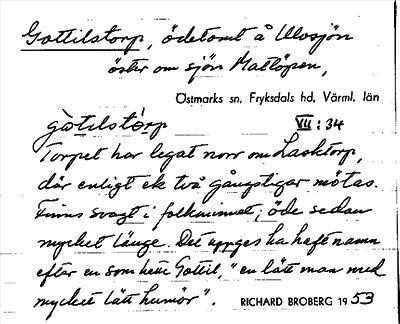 Gottilstorp, ödetomt å Ulvsjön
öster om sjön Mattöpen,
Östmarks sn, Fryksdals hd, Värml. län
gòtilstòrp VII:34
Torpet har legat norr om Lasktorp,
där enligt ek två gångstigar mötas.
Finns svagt i folkminnet; öde sedan
mycket länge. Det uppges ha haft namn
efter en som hette Gottil, "en lätt man med
mycket lätt humör".
RICHARD BROBERG 1953